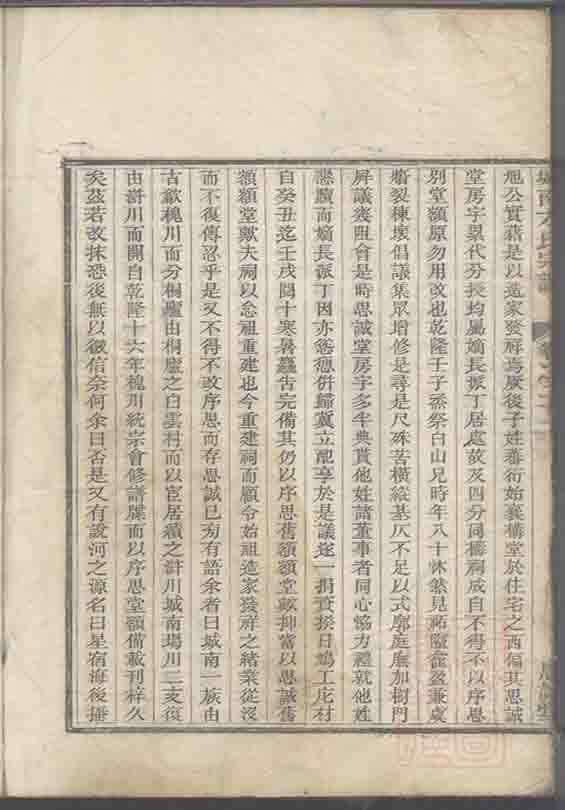 城南方氏宗譜
旭公實藉是以造家發祥焉厥後子姓蕃衍始襄構堂於住宅之西偏其思誠
堂房字累代分授均屬嫡長派丁居處故及四分同構祠成自不得不以序思
別堂額原勿用改也乾隆壬子烝祭白山兄時年八十怵然見祏隘龕盈兼虞
牆裂棟壞倡議集眾增修是尋是尺殊苦橫縱基仄不足以式廓庭廡加樹門
屏議寢阻會是時思誠堂房字多半典賃他姓諸董事者同心協力禮就他姓
讓贖而嫡長派丁因亦慫慂併歸冀立配享於是議遂一捐資揆日鳩工庀材
自癸丑迄壬戌閱十寒暑蠶告完備其仍以序思舊額額堂歟抑當以思誠舊
額額堂歟夫祠以念祖重建也今重建祠而顧令始祖造家發祥之緒業從沒
而不復傳忍乎是又不得不改序思而存思誠已刱有語余者曰城南一族由
古歙槐川而分桐廬由桐廬之白雲村而以宦居績之滸川城南塲川二支復
由滸川而開自乾隆十六年槐川統宗會修譜牒而以序思堂額備載刊梓久
矣茲若改抹恐後無以徵信奈何余曰否是又有說河之源名曰星宿海後播